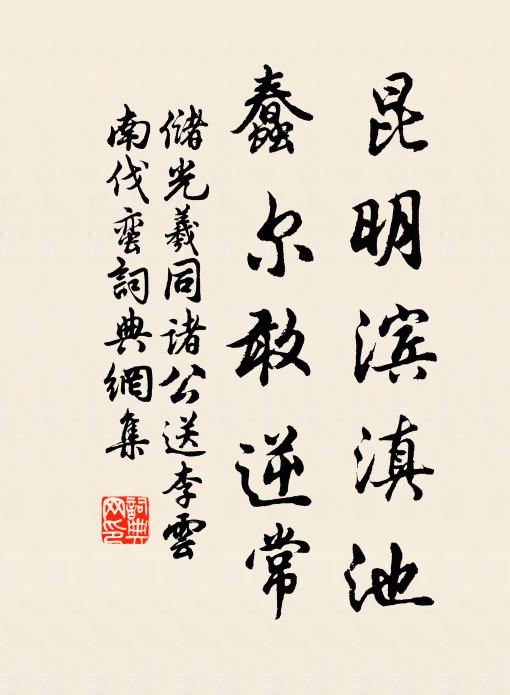 昆明滨滇池
蠢尔敢逆常
儲光羲同諸公送李雲
南伐蛮詞典網集
詞典
网印